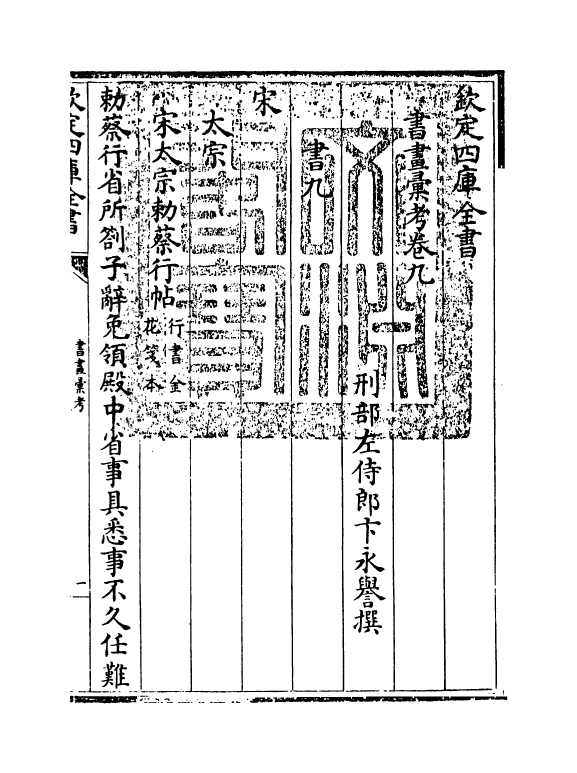 欽定四庫全書
書畫彚考卷九
刑部左侍郎卞永譽撰
書九
宋
太宗
宋太宗勅蔡行帖
行書金
花箋本
勅蔡行省所劄子辭免領殿中省事具悉事不久任難
欽定四庫全書
書畫彚考
一
文淵閣寶